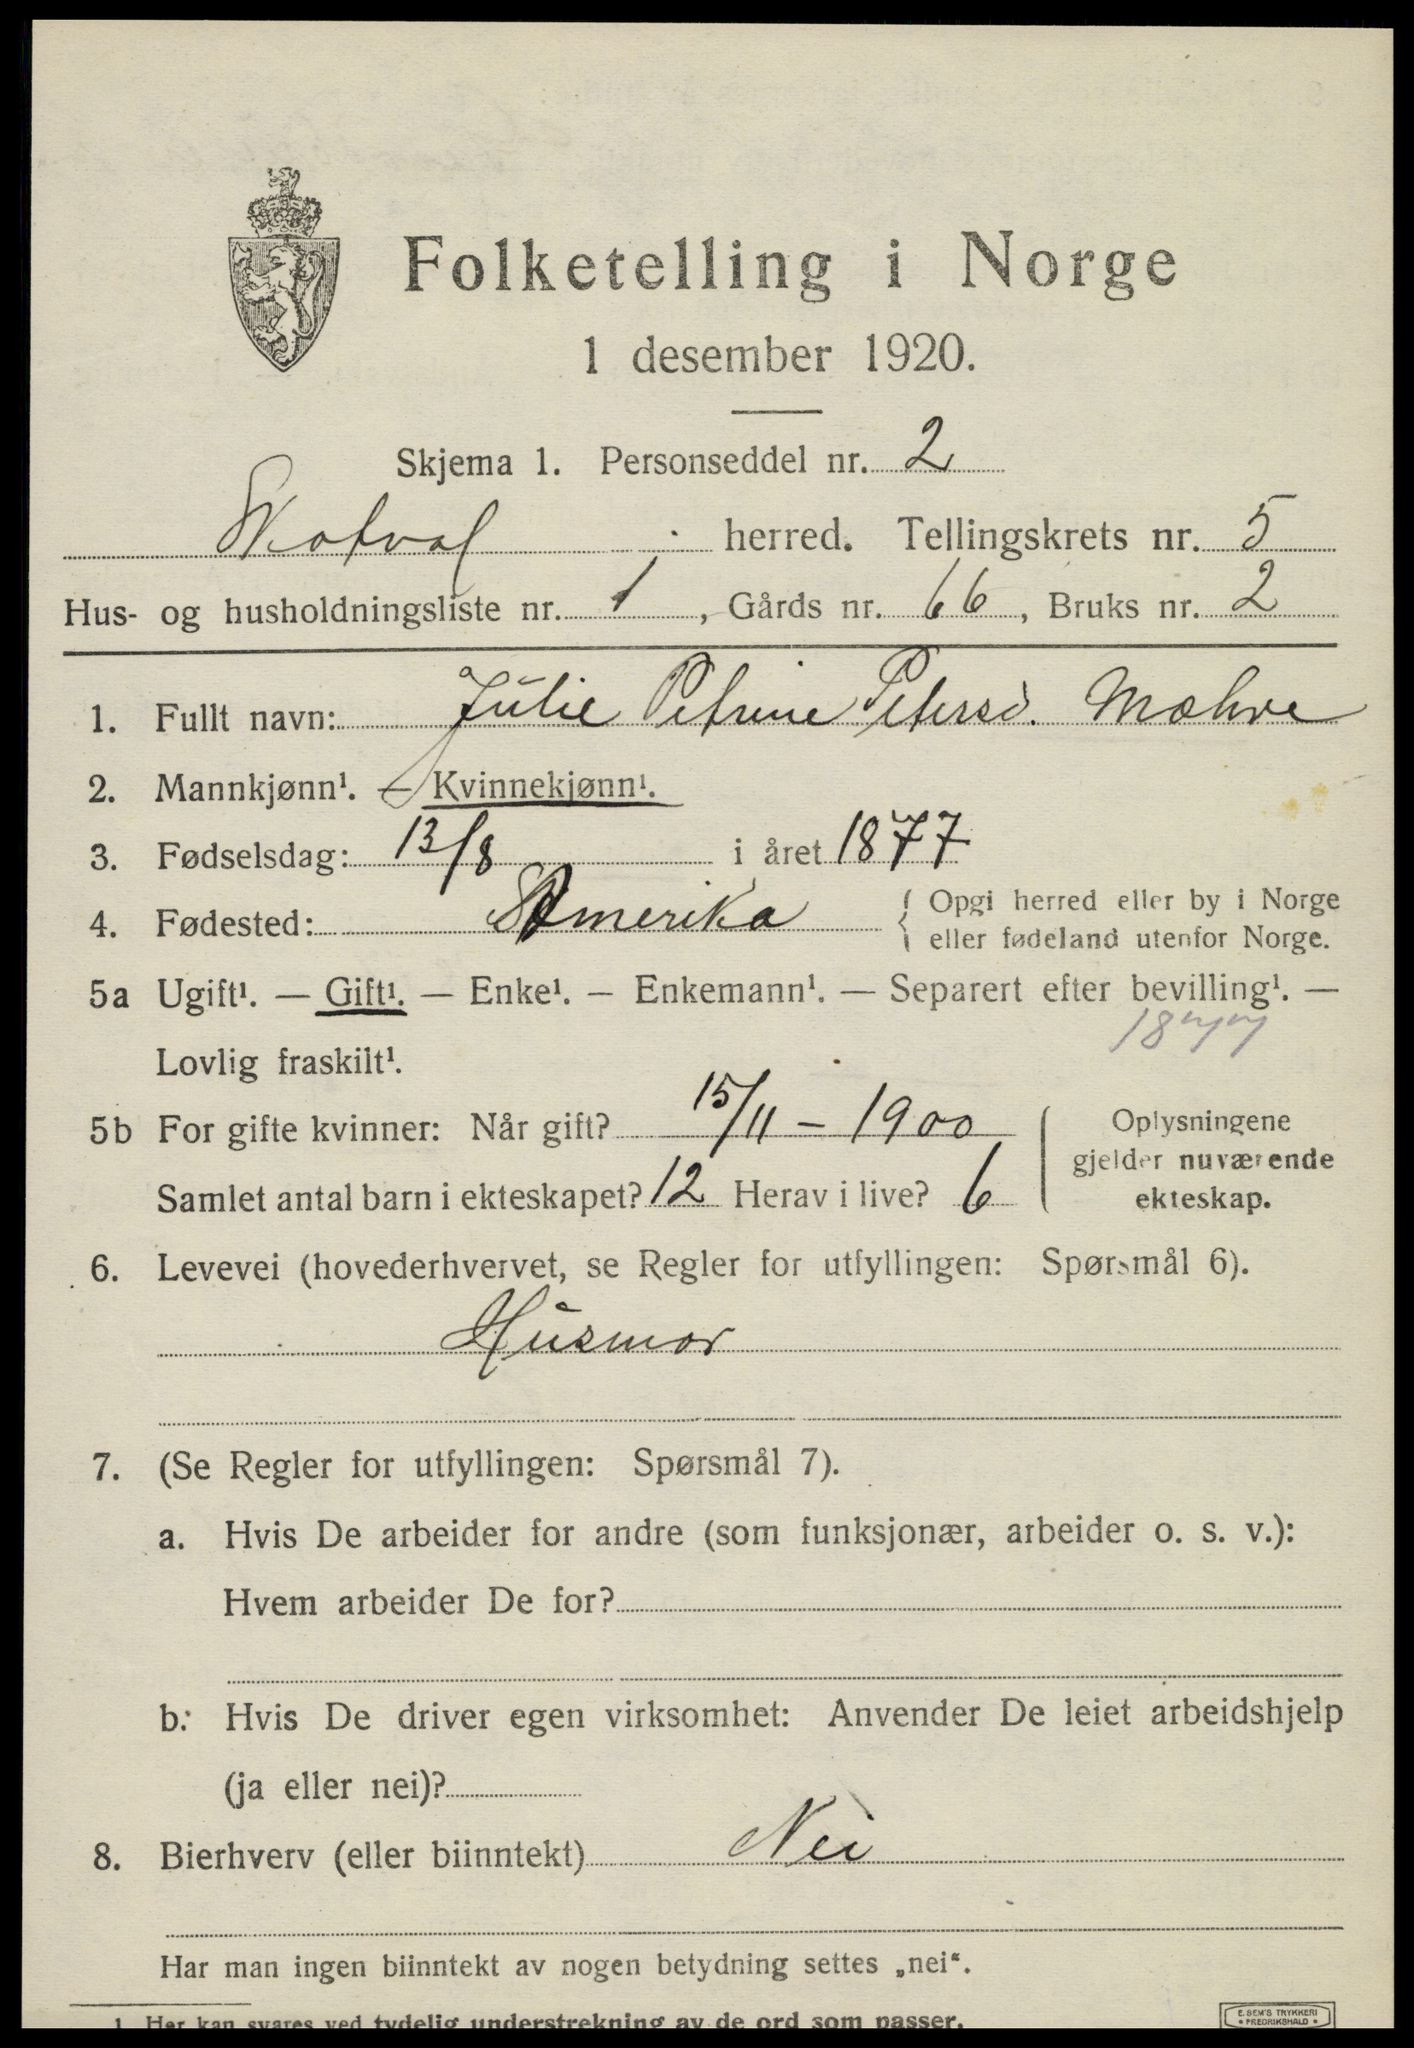 Folketelling i Norge
1 desember 1920.
Skjema 1. Personseddel nr. 2
Skatval herred. Tellingskrets nr. 5
Hus- og husholdningsliste nr. 1, Gårds nr. 66, Bruks nr. 2
1. Fullt navn: Julie Petrine Petersd. Mæhre
2. Mannkjønn¹. — Kvinnekjønn¹.
3. Fødselsdag: 13/8 i året 1877
4. Fødested: Amerika { Opgi herred eller by i Norge
eller fødeland utenfor Norge.
5a Ugift¹. — Gift¹. — Enke¹. — Enkemann¹. — Separert efter bevilling¹. —
1877
Lovlig fraskilt¹.
5b For gifte kvinner: Når gift? 15/11 – 1900
Samlet antal barn i ekteskapet? 12 Herav i live? 6
Oplysningene
gjelder nuværende
ekteskap.
6. Levevei (hovederhvervet, se Regler for utfyllingen: Spørsmål 6).
Husmor
7. (Se Regler for utfyllingen: Spørsmål 7).
a. Hvis De arbeider for andre (som funksjonær, arbeider o. s. v.):
Hvem arbeider De for?
b. Hvis De driver egen virksomhet: Anvender De leiet arbeidshjelp
(ja eller nei)?
8. Bierhverv (eller biinntekt) Nei
Har man ingen biinntekt av nogen betydning settes „nei“.
1. Her kan svares ved tydelig understrekning av de ord som passer.
E. SEM'S TRYKKERI
• FREDRIKSHALD •